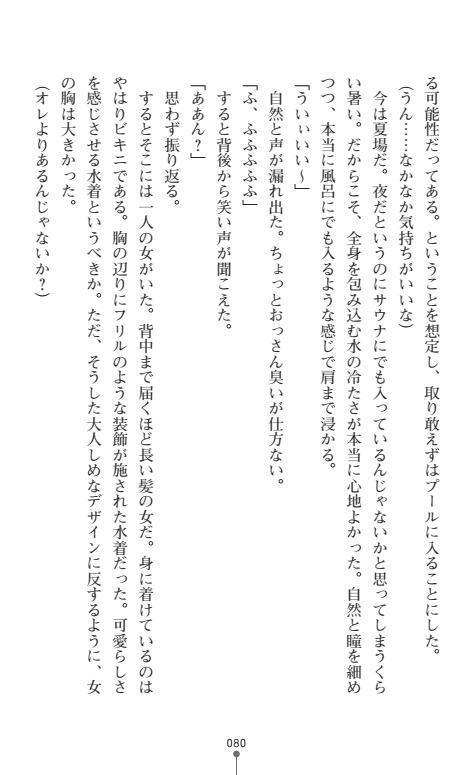 る可能性だってある。ということを想定し、取り敢えずはプールに入ることにした。
(うん……なかなか気持ちがいいな)
今は夏場だ。夜だというのにサウナにでも入っているんじゃないかと思ってしまうくら
い暑い。だからこそ、全身を包み込む水の冷たさが本当に心地よかった。自然と瞳を細め
つつ、本当に風呂にでも入るような感じで肩まで浸かる。
「うぃぃいい〜」
自然と声が漏れ出た。ちょっとおっさん臭いが仕方ない。
「ふ、ふふふふふ」
すると背後から笑い声が聞こえた。
「ああん？」
思わず振り返る。
するとそこには一人の女がいた。背中まで届くほど長い髪の女だ。身に着けているのは
やはりビキニである。胸の辺りにフリルのような装飾が施された水着だった。可愛らしさ
を感じさせる水着というべきか。ただ、そうした大人しめなデザインに反するように、女
の胸は大きかった。
(オレよりあるんじゃないか？)
080